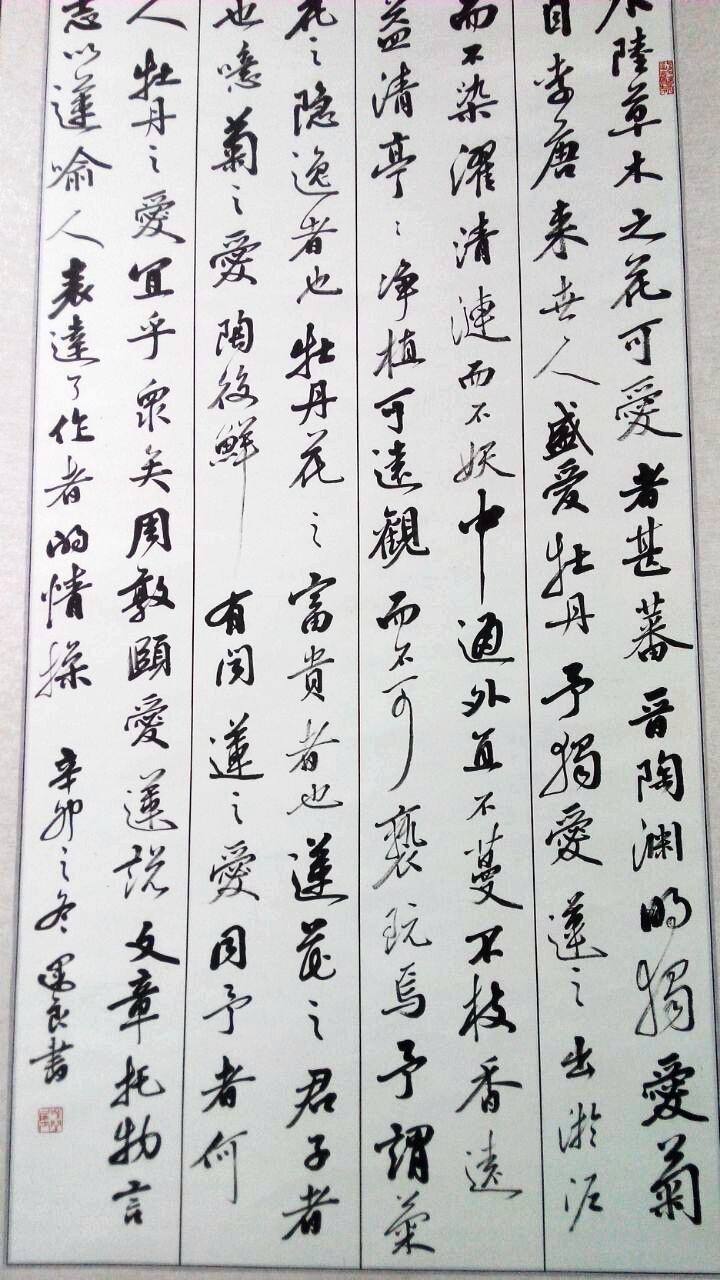 水陸草木之花可愛者甚蕃晉陶淵明獨愛菊
自李唐来世人盛愛牡丹予獨愛蓮之出淤泥
而不染濯清漣而不妖中通外直不蔓不枝香遠
益清亭〻净植可遠觀而不可褻玩焉予謂菊
花之隐逸者也牡丹花之富貴者也蓮花之君子者
也噫菊之愛陶後鮮有闻蓮之愛同予者何
人牡丹之愛宜乎衆矣周敦頤愛蓮説文章托物言
志以蓮喻人表達了作者的情操 辛卯之冬 良書